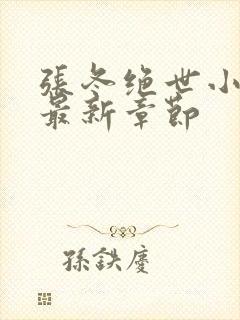 張冬绝世小
最新章節
孫鉄慶